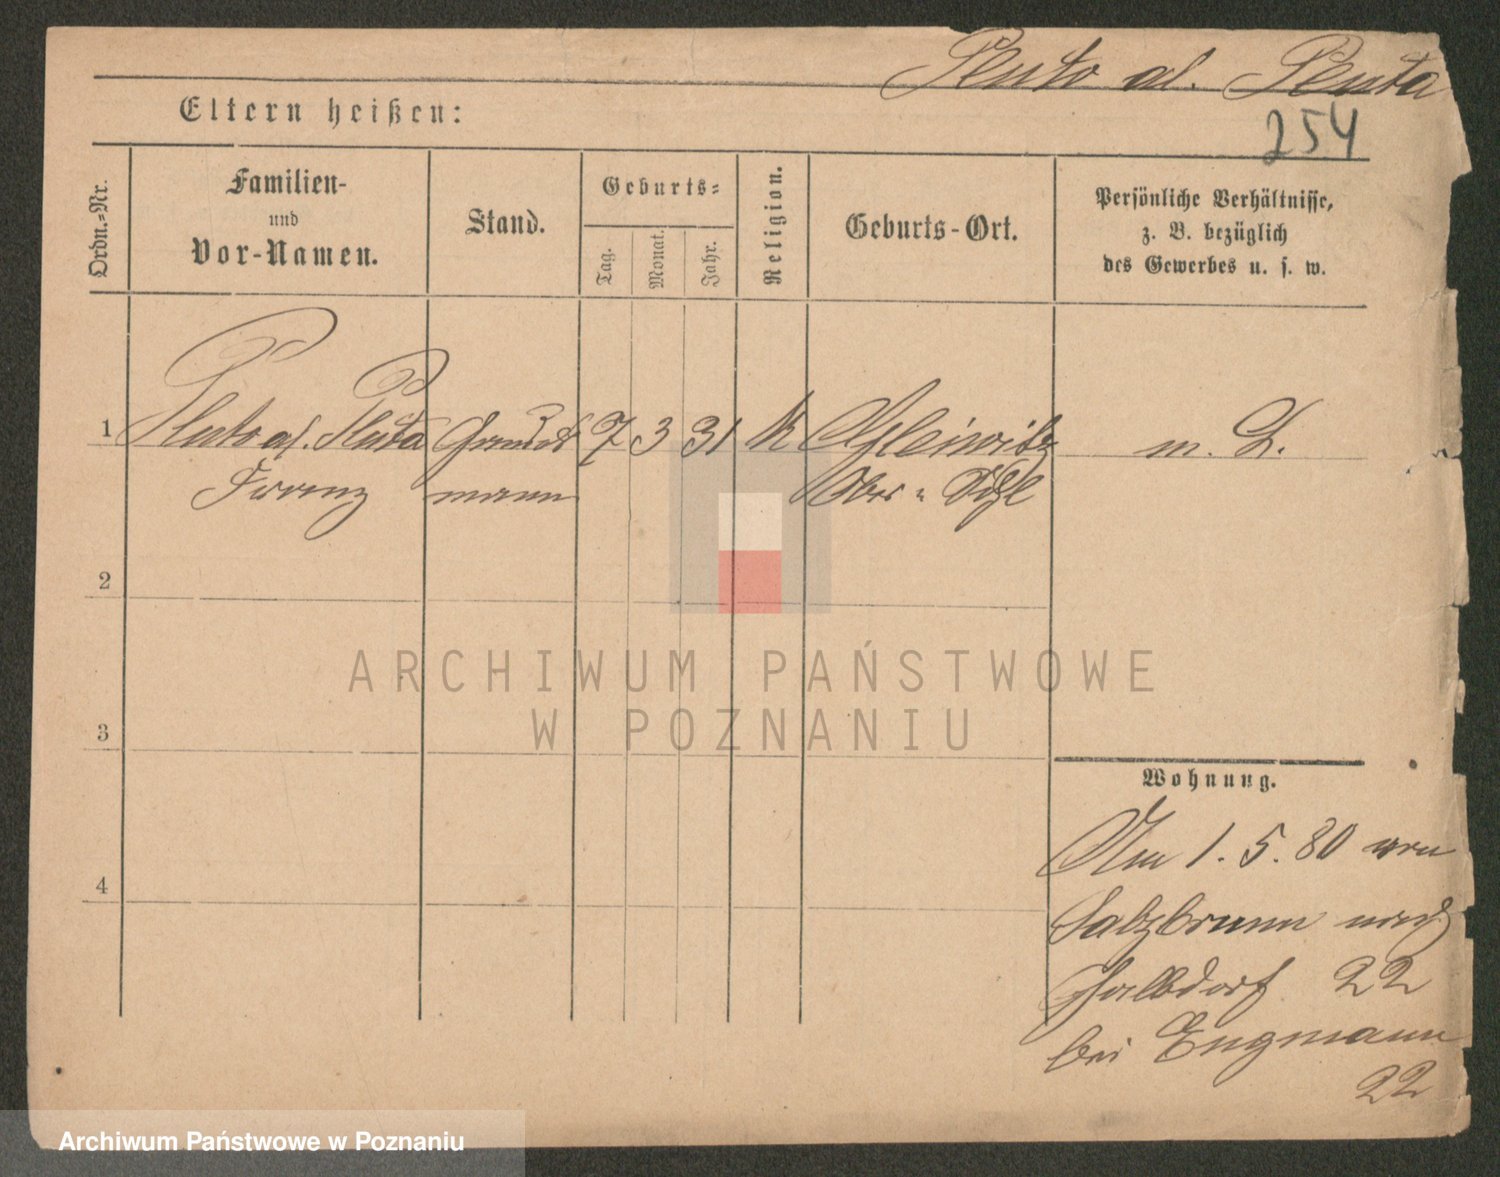 Pluto al. Pluta
254
Eltern heißen:
Ordn.=Nr.
Familien-
und
Vor-Namen.
Stand.
Geburts=
Tag.
Monat.
Jahr.
Religion.
Geburts-Ort.
Persönliche Verhältnisse,
z. B. bezüglich
des Gewerbes u. s. w.
1 Pluto al. Pluta 7 3 31 k Gleiwitz m.
Franz mann Ober
2
3
4
Wohnung.
Am 1. 5. 80 von
Salzbrunn nach
Halbdorf 22
bei Engmann
22
ARCHIWUM PAŃSTWOWE
W POZNANIU
Archiwum Państwowe w Poznaniu